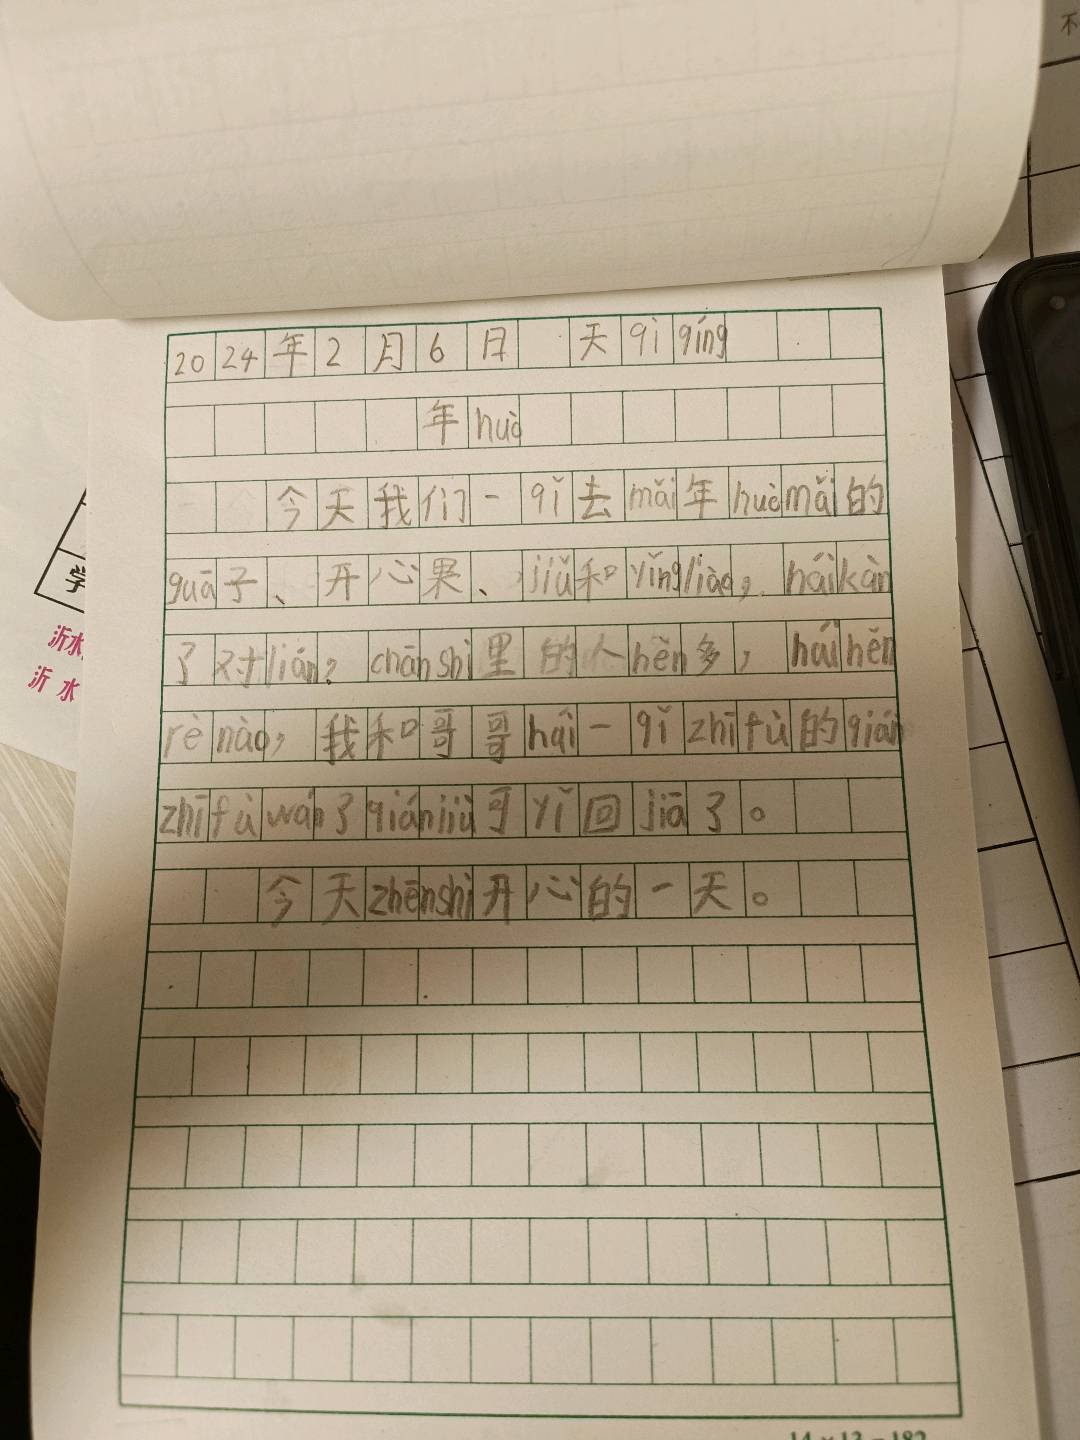 不
2024年2月6日 天qì qíng
年huò
今天我们一qǐ去mǎi年huòmǎi的
guā子、开心果、jiǔ和yǐngliào,háikàn
了对lián,chāoshì里的人hěn多,háihěn
rènào,我和哥哥hái一qǐzhīfù的qián
zhīfùwán了qiánjiù可yǐ回jiā了。
今天zhēnshì开心的一天。
学
沂水
沂水
14×13=182